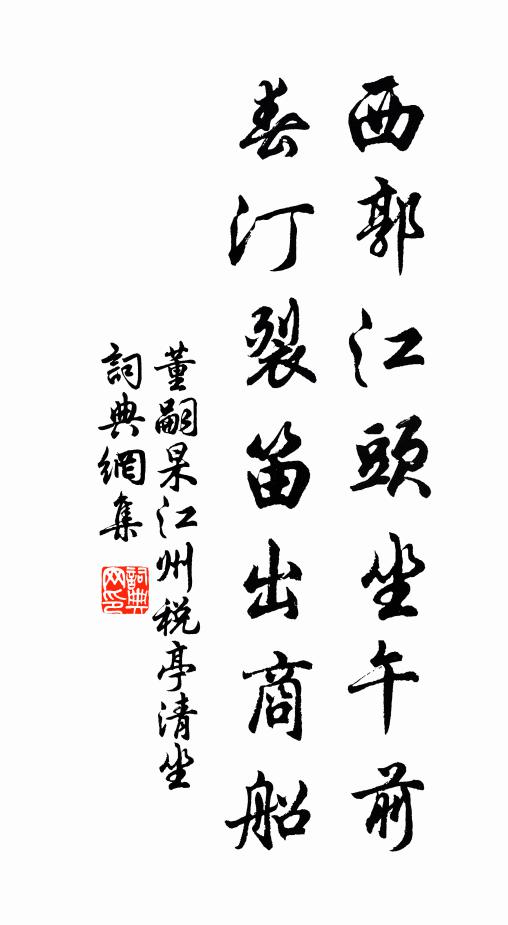 西郭江頭坐午前
春汀裂笛出商船
董嗣杲江州税亭清坐
詞典網集
詞典网印